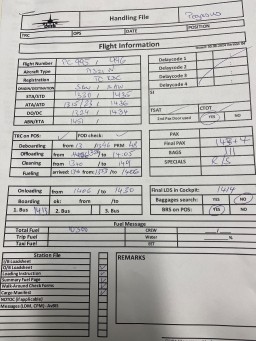 Handling File
TRC
OPS
DATE
POSITION
Flight Information
Flight Number PC 995 /
Delaycode 1
Aircraft Type
Delaycode 2
Registration
Delaycode 3
ORIGIN/DESTINATION SAW / SAW
Delaycode 4
STA/STD 1330 / 1435
SI
ATA/ATD / 1436
DO/DC 1324 / 1434
TSAT CTOT
ABN/ETA 1451
End Pax Door used YES NO
TRC on POS: FOD check:
PAX
Deboarding from to PRM
Final PAX 148+4
Offloading from to 14:05
BAGS
Cleaning from to
SPECIALS
Fueling arrived: from to 1406
Onloading from 1406 to 1430
Final LDS in Cockpit: 1414
Boarding ok: from /to
Baggages search: YES NO
1. Bus 2. Bus 3. Bus
BRS on POS: YES NO
Fuel Message
Total Fuel CREW /
Trip Fuel Water %
Taxi Fuel EET
Station File
REMARKS
I/B Loadsheet
O/B Loadsheet
Loading Instruction
Summary Fuel Page
Walk-Around Check Forms
Cargo Manifest
NOTOC (if applicable)
Messages (LDM, CPM) - AvBIS